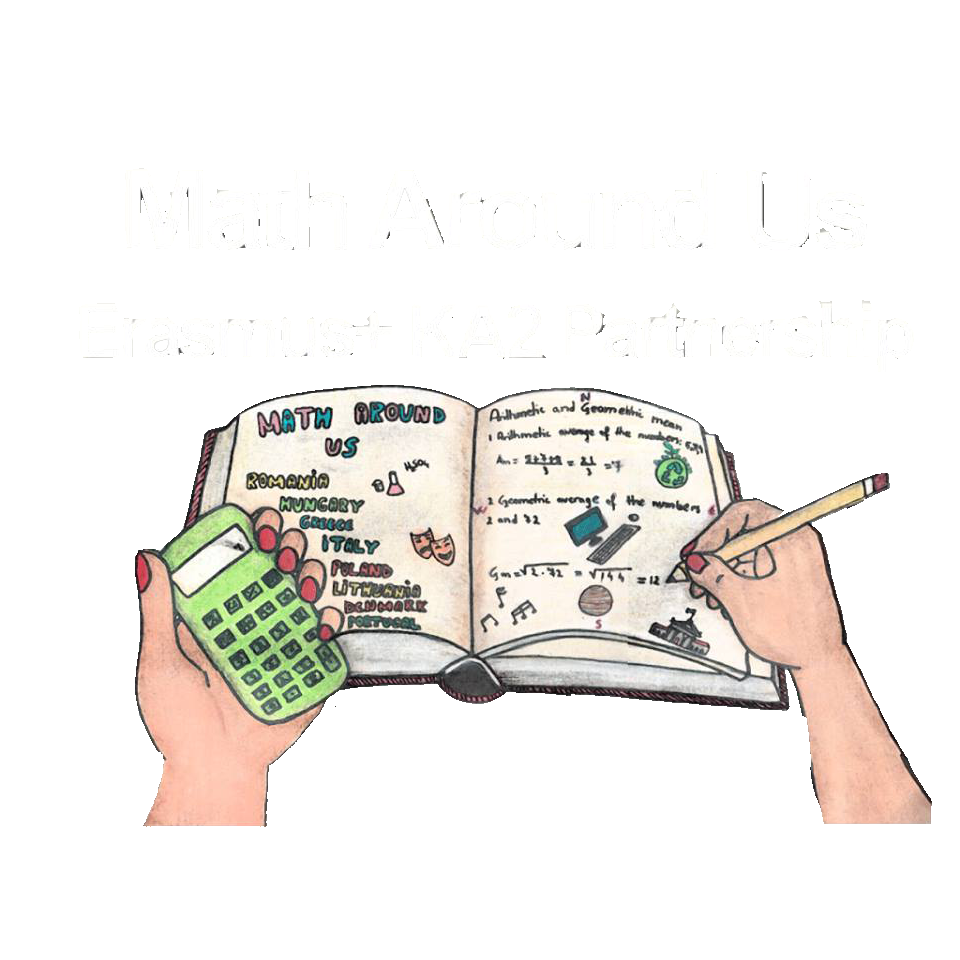 Math Around Us
Erasmus+ KA2 Partnership
MATH AROUND
US
ROMANIA
HUNGARY
GREECE
ITALY
POLAND
LITHUANIA
DENMARK
PORTUGAL
H₂SO₄
N
Arithmetic and Geometric mean
1 Arithmetic average of the numbers: 5,7,9
Am = 5+7+9/3 = 21/3 = 7
2 Geometric average of the numbers
2 and 72
Gm = √2.72 = √144 = 12
S